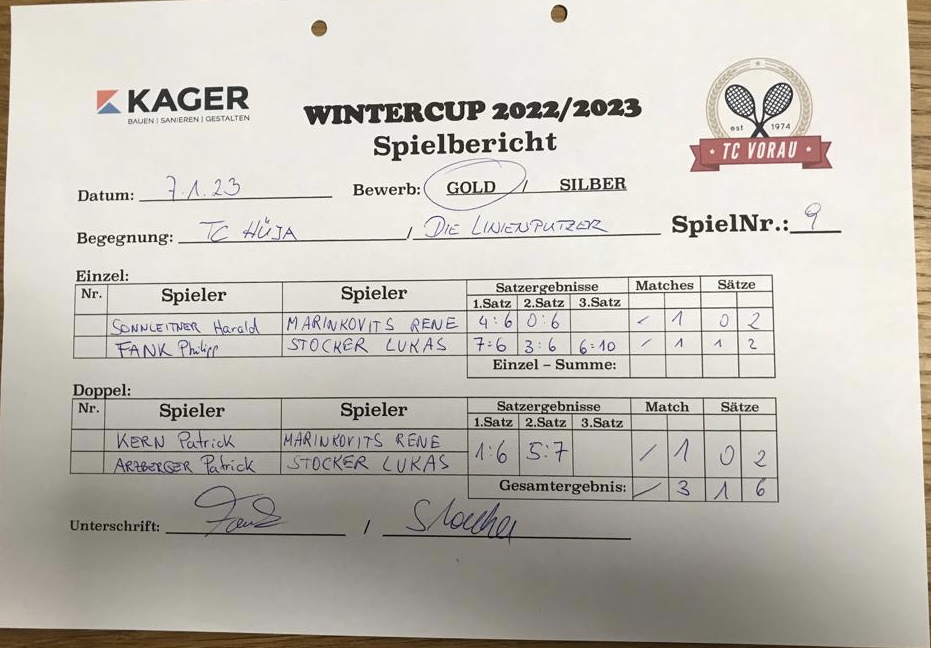 KAGER
BAUEN | SANIEREN | GESTALTEN
WINTERCUP 2022/2023
Spielbericht
est 1974
TC VORAU
Datum: 7.1.23 Bewerb: GOLD / SILBER
Begegnung: TC HÜJA / DIE LINIENPUTZER SpielNr.: 9
Einzel:
Nr. Spieler Spieler Satzergebnisse Matches Sätze
1.Satz 2.Satz 3.Satz
SONNLEITNER Harald MARINKOVITS RENE 4:6 0:6 / 1 0 2
FANK Philipp STOCKER LUKAS 7:6 3:6 6:10 / 1 1 2
Einzel – Summe:
Doppel:
Nr. Spieler Spieler Satzergebnisse Match Sätze
1.Satz 2.Satz 3.Satz
KERN Patrick MARINKOVITS RENE 1:6 5:7 / 1 0 2
ARZBERGER Patrick STOCKER LUKAS
Gesamtergebnis: / 3 1 6
Unterschrift: Fank / Stocker